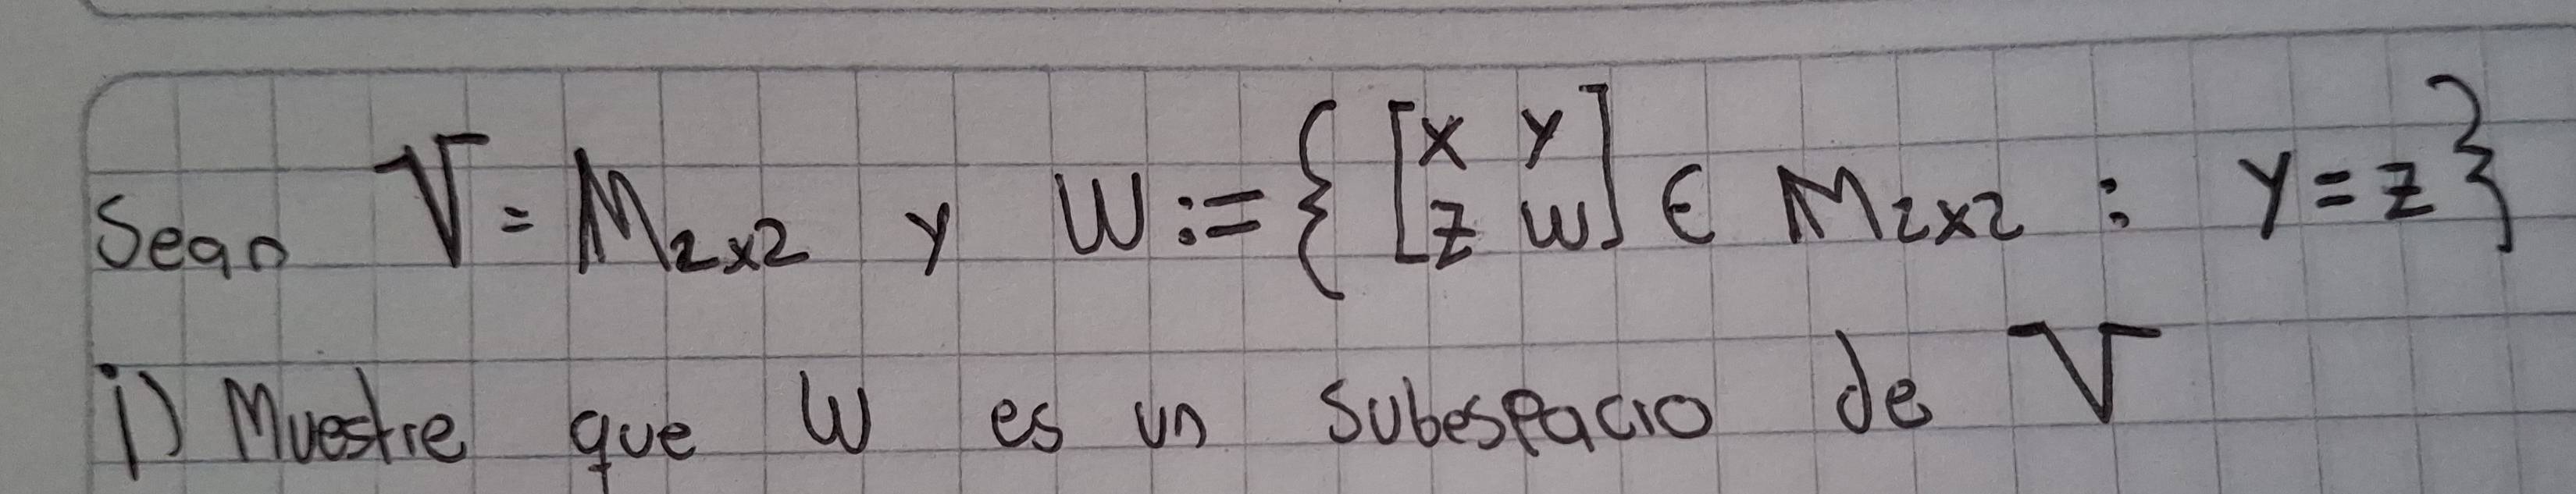 Sean V = M2x2 y W := { [x y z w] ∈ M2x2 : y = z }
i) Muestre que W es un subespacio de V